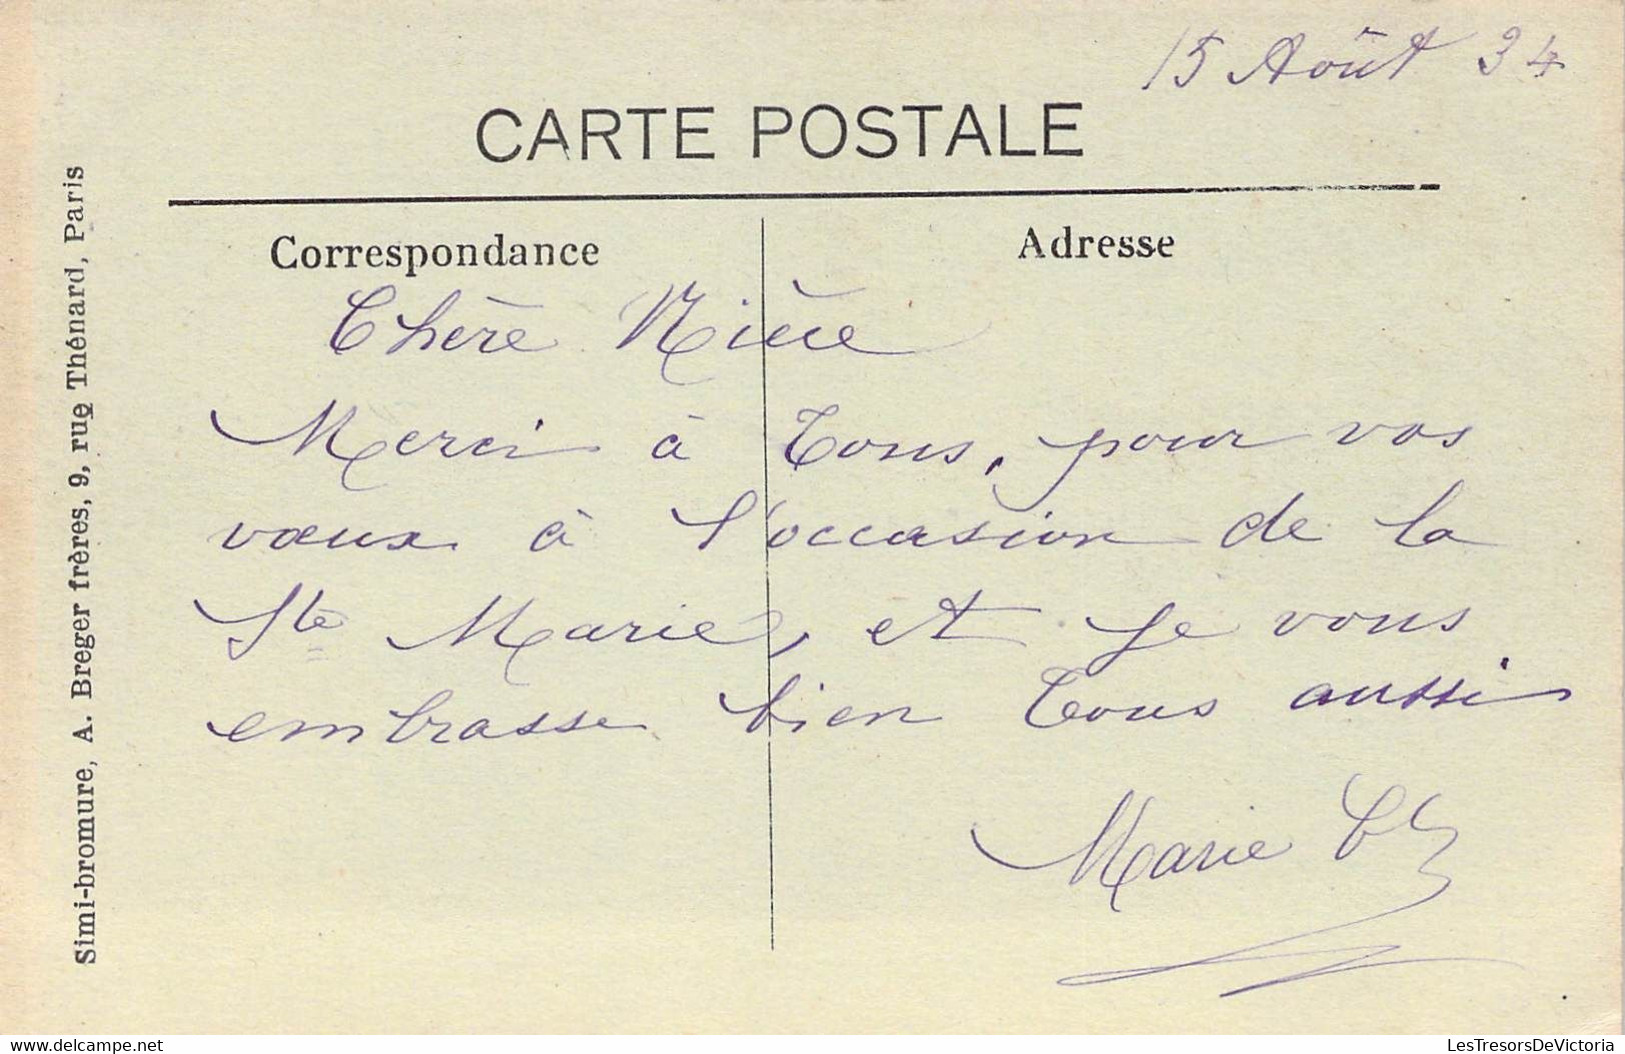 15 Août 34
CARTE POSTALE
Correspondance
Adresse
Chère Nièce
Merci à Tous, pour vos
vœux à l'occasion de la
Ste Marie, et je vous
embrasse bien Tous aussi
Marie
Simi-bromure, A. Breger frères, 9, rue Thénard, Paris
www.delcampe.net
LesTresorsDeVictoria